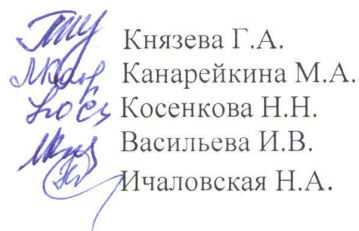 Князева Г.А.
Канарейкина М.А.
Косенкова Н.Н.
Васильева И.В.
Ичаловская Н.А.